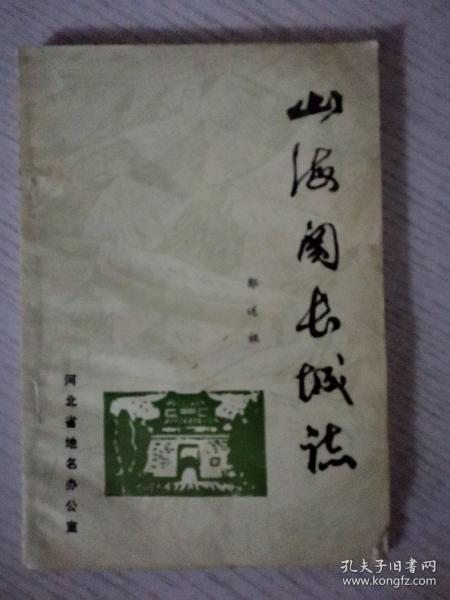 山海关长城志
郭述祖
河北省地名办公室
孔夫子旧书网
www.kongfz.com